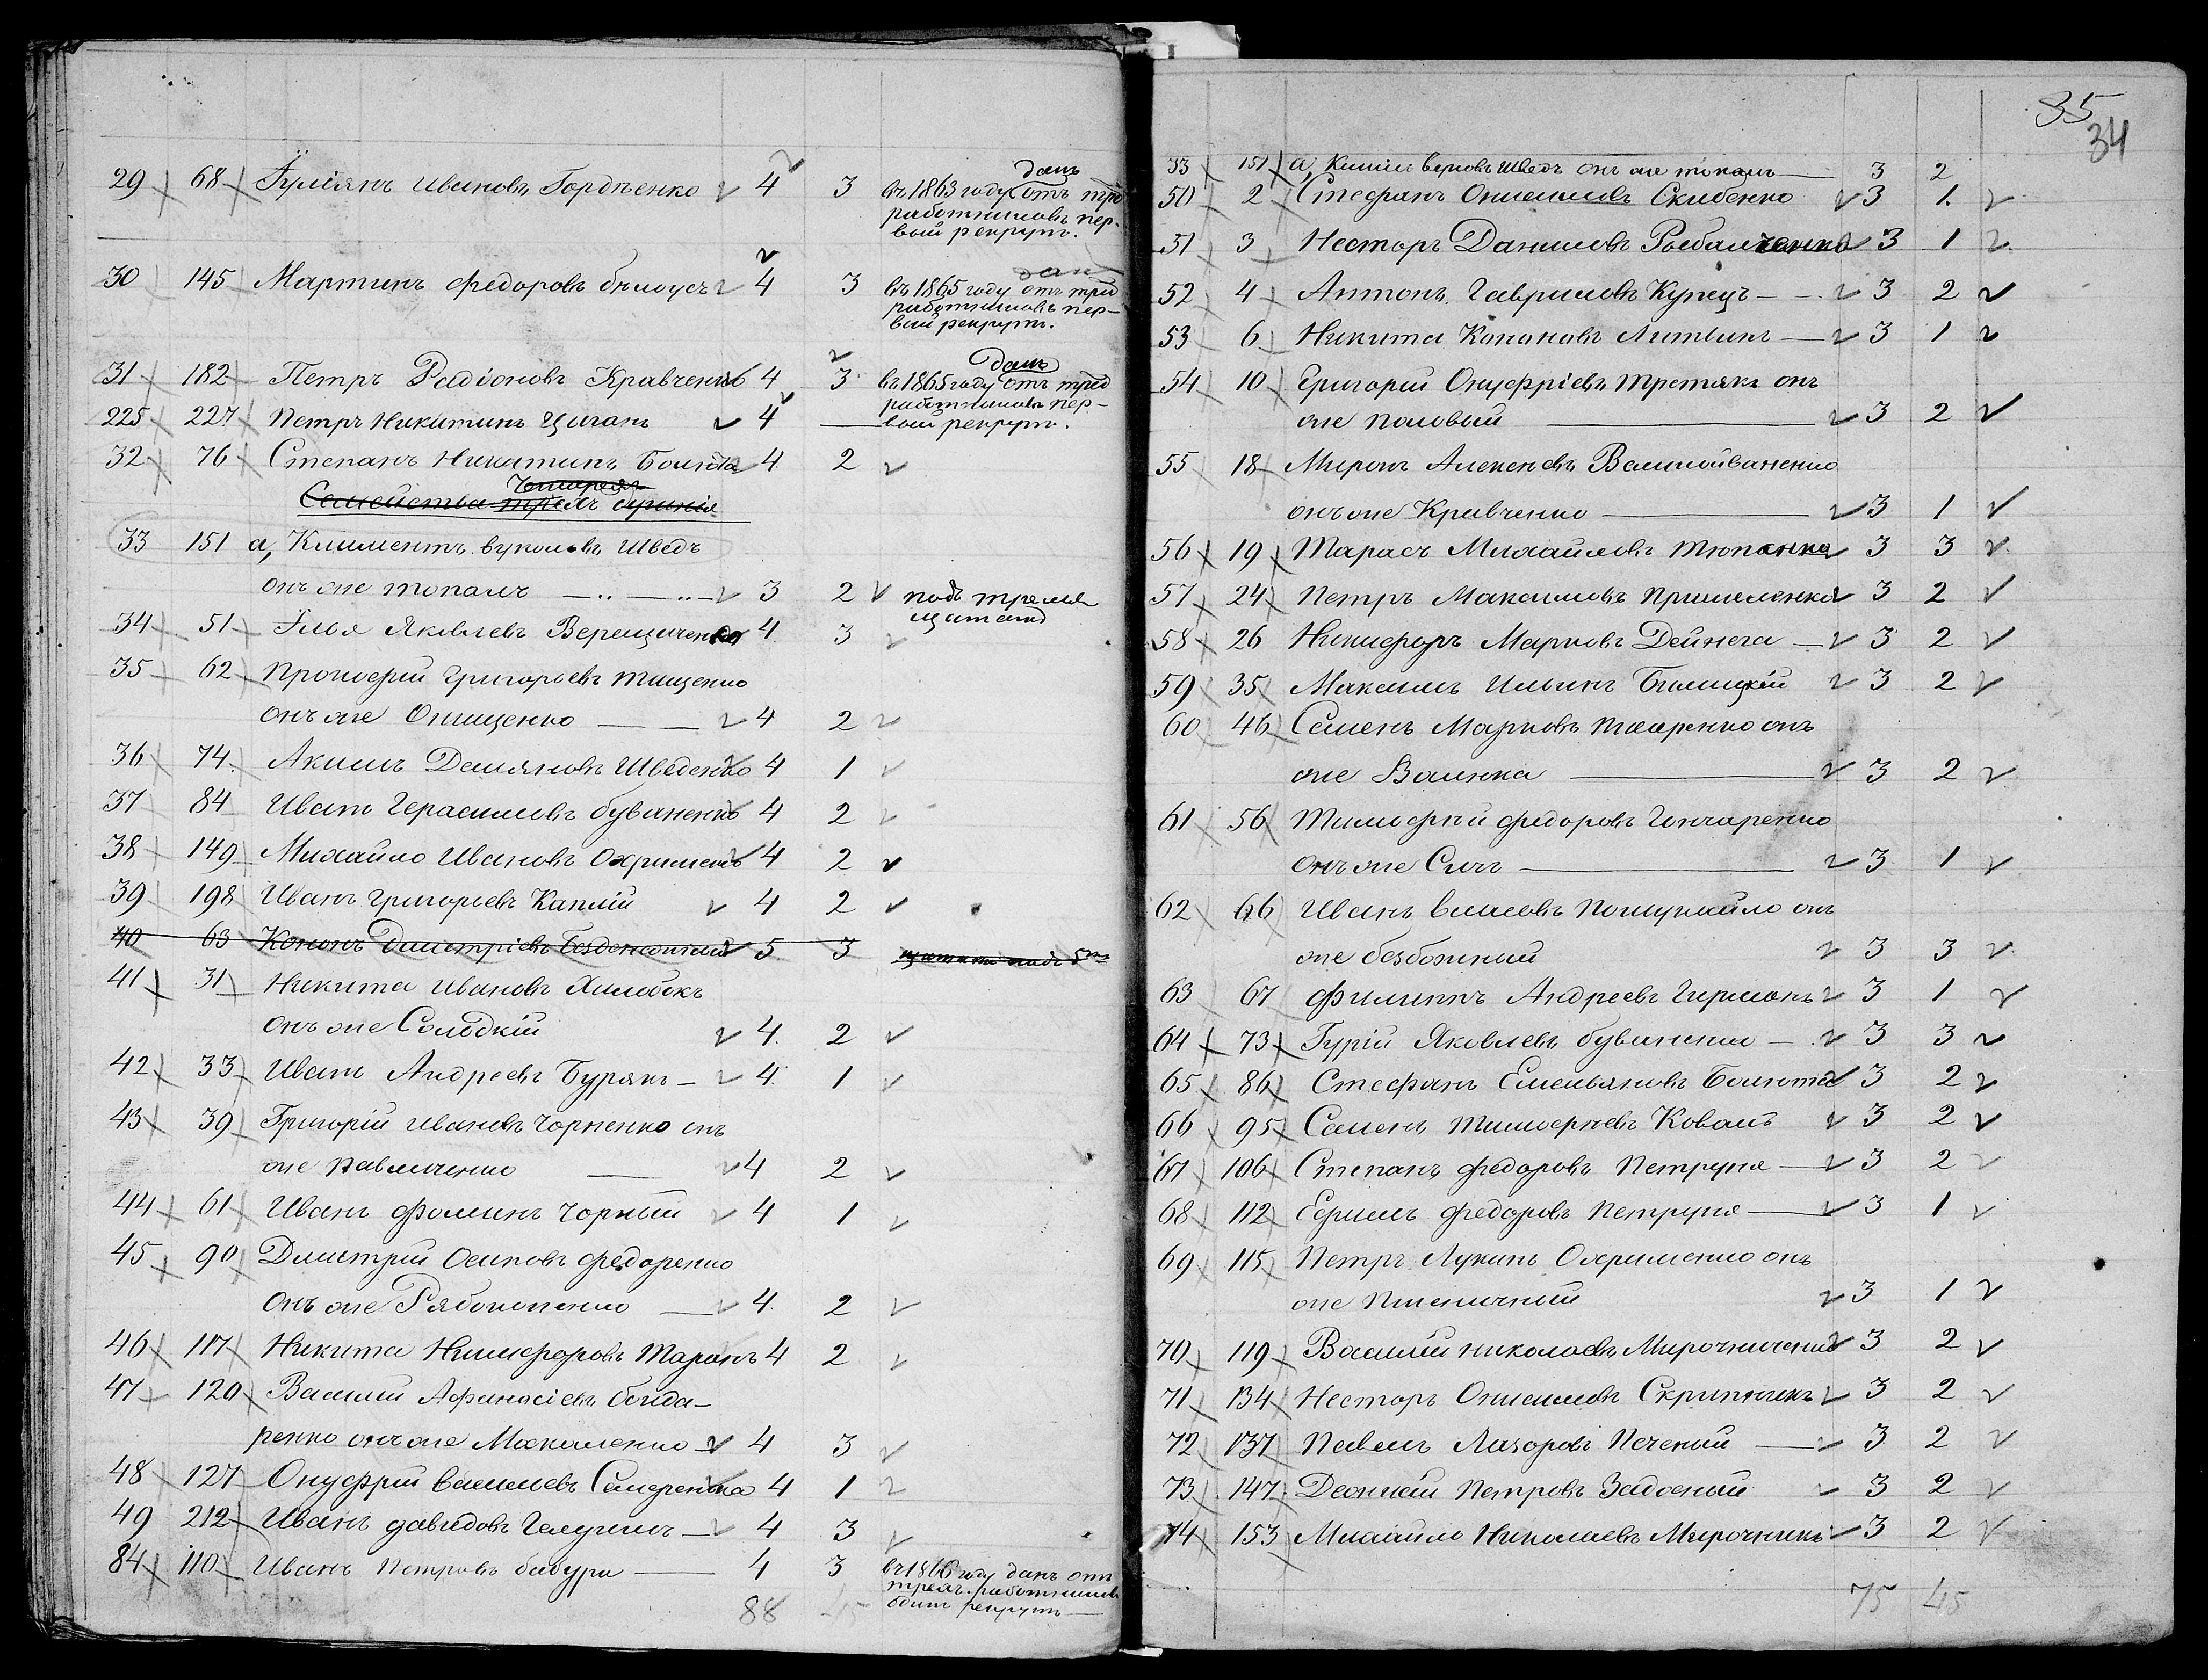 29 68 Іуліянъ Ивановъ Гордѣенко 4 3 въ 1863 году данъ отъ трех
работниковъ пер-
вый рекрутъ.
30 145 Мартинъ Федоровъ бѣлоусъ 4 3 въ 1865 году данъ отъ трех
работниковъ пер-
вый рекрутъ.
31 182 Петръ Радіоновъ Кравченко 4 3 въ 1865 году данъ отъ трех
работниковъ пер-
225 227 Петръ Никитинъ Циганъ 4 — вый рекрутъ.
32 76 Степанъ Никитинъ 4 2
Четырехъ
Семейства трехъ
33 151 а, Климентъ вуколовъ Шведъ
онъ же топалъ 3 2 подъ тремя
34 51 Илья Яковлевъ Верещаченко 4 3
35 62 Прокофий Григорьевъ Тищенко
онъ же Онищенко 4 2
36 74 Акимъ Демяновъ Шведенко 4 1
37 84 Иванъ Герасимовъ буваненко 4 2
38 149 Михайло Ивановъ Охрименко 4 2
39 198 Иванъ Григорьевъ Каплій 4 2
40 63 Кононъ Дмитріевъ 5 3
41 31 Никита Ивановъ Хилобокъ
онъ же Солодкій 4 2
42 33 Иванъ Андреевъ Бурякъ 4 1
43 39 Григорій Ивановъ Чорненко онъ
же Павличенко 4 2
44 61 Иванъ Фоминъ Чорный 4 1
45 90 Дмитрий Осиповъ Федоренко
онъ же Рябоконенко 4 2
46 117 Никита Никифоровъ Таранъ 4 2
47 120 Василий Афанасіевъ бонда-
ренко онъ же Макаленко 4 3
48 127 Онуфрий Васильевъ 4 1
49 212 Иванъ давидовъ 4 3
84 110 Иванъ Петровъ бабура 4 3 въ 1866 году данъ отъ
трехъ работниковъ
88 45 одинъ рекрутъ
35
34
33 151 а, Климъ Шведъ онъ же топалъ 3 2
50 2 Стефанъ Онисимовъ Скибенко 3 1
51 3 Несторъ Даниловъ Рыбалченко 3 1
52 4 Антонъ Гавриловъ Купецъ 3 2
53 6 Никита Кононовъ Литвинъ 3 1
54 10 Григорий Онуфріевъ Третякъ онъ
же Половый 3 2
55 18 Миронъ Алексѣевъ
онъ же Кравченко 3 1
56 19 Тарасъ Михайловъ 3 3
57 24 Петръ Максимовъ 3 2
58 26 Никифоръ Марковъ Дейнега 3 2
59 35 Максимъ Ильинъ Билицкій 3 2
60 46 Семенъ Марковъ онъ
же 3 2
61 56 Тимофѣй Федоровъ Гончаренко
онъ же Сичъ 3 1
62 66 Иванъ Власовъ онъ
же безбожный 3 3
63 67 Филиппъ Андреевъ 3 1
64 73 Гурій Яковлевъ буваненко 3 3
65 86 Стефанъ Емельяновъ 3 2
66 95 Семенъ Тимофѣевъ Коваль 3 2
67 106 Степанъ Федоровъ Петруня 3 2
68 112 Ефимъ Федоровъ Петруня 3 1
69 115 Петръ Лукинъ Охрименко онъ
же Пшеничный 3 1
70 119 Василій Николаевъ Мирошниченко 3 2
71 134 Несторъ Онисимовъ Скрипникъ 3 2
72 137 Павелъ Лазоровъ Печеный 3 2
73 147 Петровъ 3 2
74 153 Михайло Николаевъ Мирошникъ 3 2
75 45